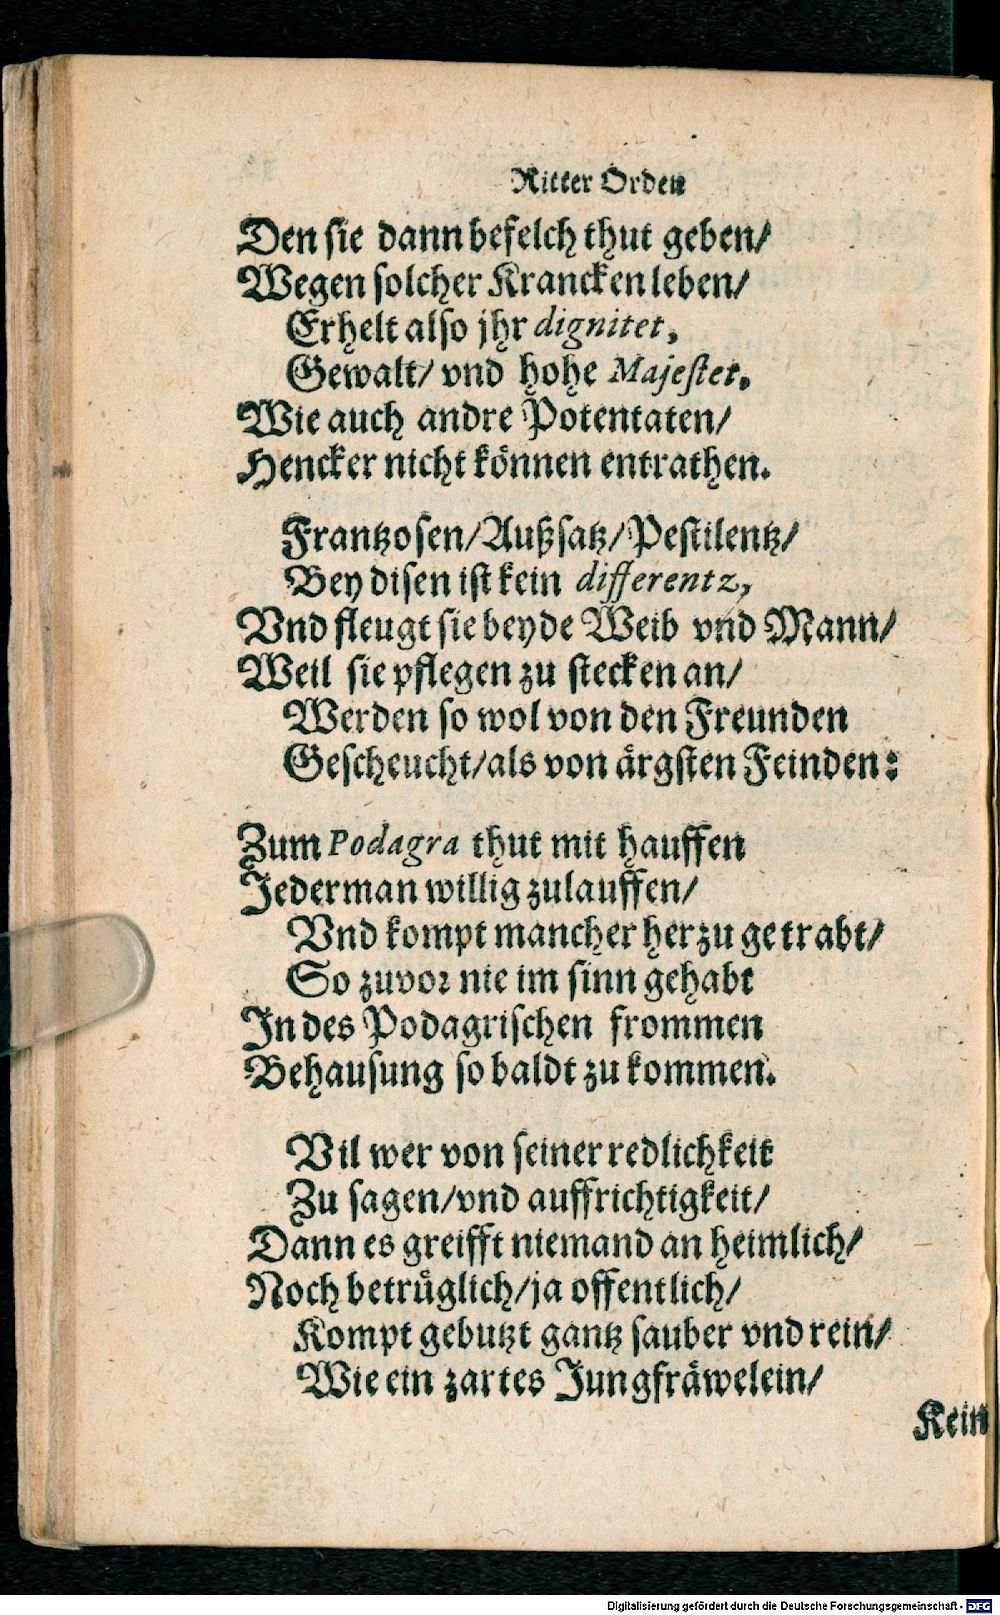 Ritter Orden
Den sie dann befelch thut geben/
Wegen solcher Krancken leben/
Erhelt also jhr dignitet,
Gewalt/ vnd hohe Majestet.
Wie auch andre Potentaten/
Hencker nicht können entrathen.
Frantzosen/Außsatz/Pestilentz/
Bey disen ist kein differentz,
Vnd fleugt sie beyde Weib vnd Mann/
Weil sie pflegen zu stecken an/
Werden so wol von den Freunden
Gescheucht/als von ärgsten Feinden:
Zum Podagra thut mit hauffen
Jederman willig zulauffen/
Vnd kompt mancher herzu getrabt/
So zuvor nie im sinn gehabt
In des Podagrischen frommen
Behausung so baldt zu kommen.
Vil wer von seiner redlichkeit
Zu sagen/vnd auffrichtigkeit/
Dann es greifft niemand an heimlich/
Noch betrüglich/ja offentlich/
Kompt gebutzt gantz sauber vnd rein/
Wie ein zartes Jungfräwelein/
Kein
Digitalisierung gefördert durch die Deutsche Forschungsgemeinschaft - DFG